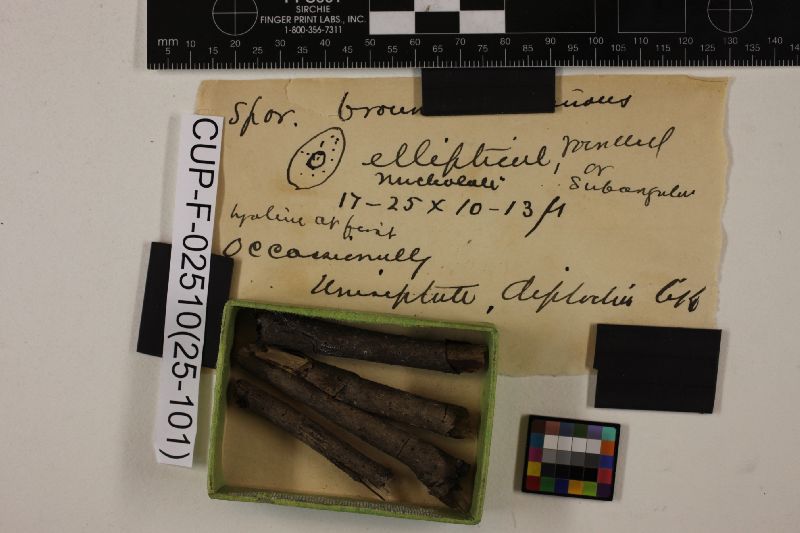 SIRCHIE
FINGER PRINT LABS., INC.
1-800-356-7311
mm 5 10 15 20 25 30 35 40 45 50 55 60 65 70 75 80 85 90 95 100 105 110 115 120 125 130 135 140
Spor.
elliptical, rounded
or
Subangular
17-25 X 10-13 µ
hyaline at first
Occassionally
Uniseptate, diplodia
CUP-F-02510(25-101)